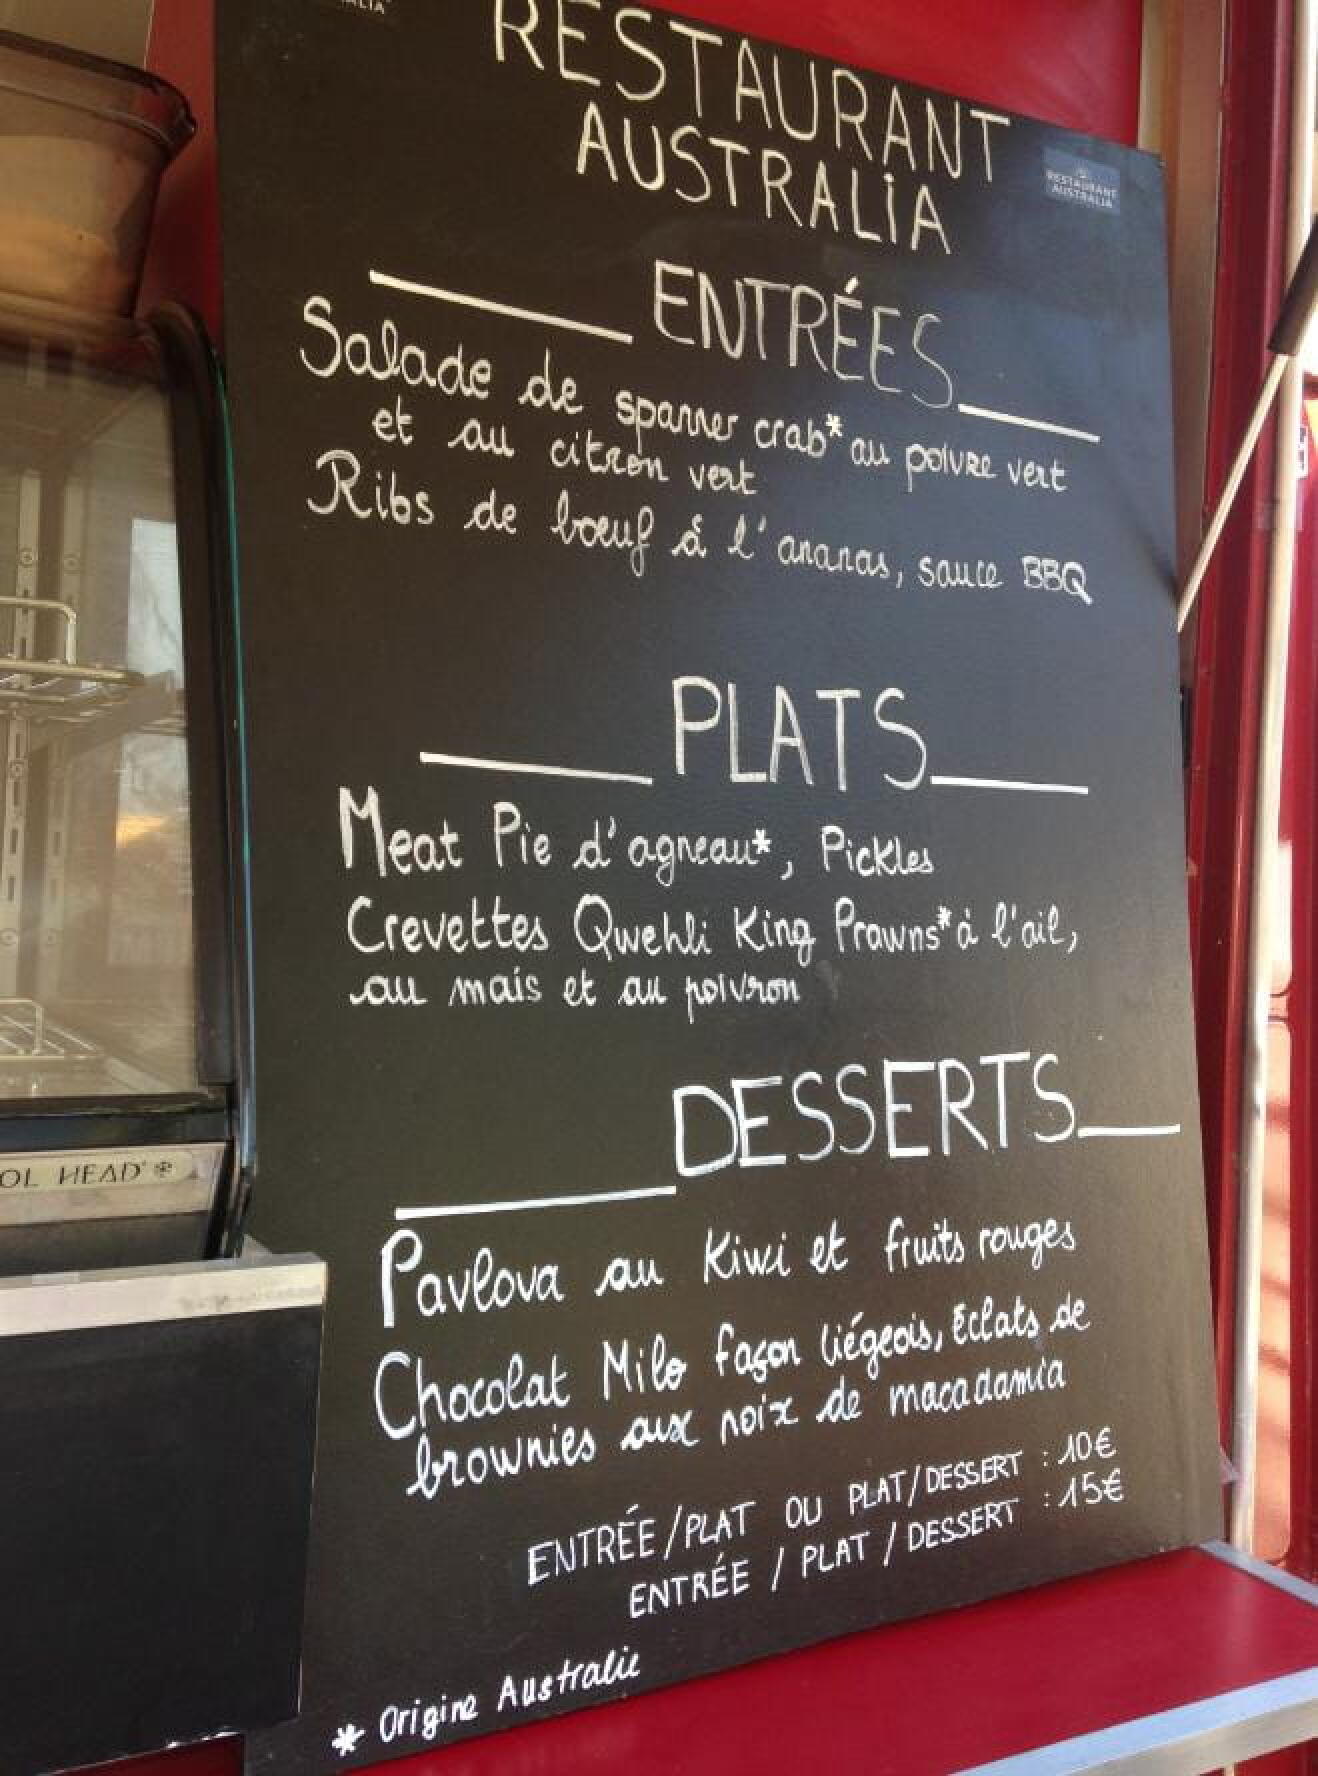 RESTAURANT
AUSTRALIA
RESTAURANT
AUSTRALIA
ENTRÉES
Salade de spanner crab* au poivre vert
et au citron vert
Ribs de bœuf à l'ananas, sauce BBQ
PLATS
Meat Pie d'agneau*, Pickles
Crevettes Qwehli King Prawns* à l'ail,
au maïs et au poivron
DESSERTS
Pavlova au Kiwi et fruits rouges
Chocolat Milo façon liégeois, Éclats de
brownies aux noix de macadamia
ENTRÉE/PLAT OU PLAT/DESSERT : 10€
ENTRÉE / PLAT / DESSERT : 15€
* Origine Australie
OL HEAD